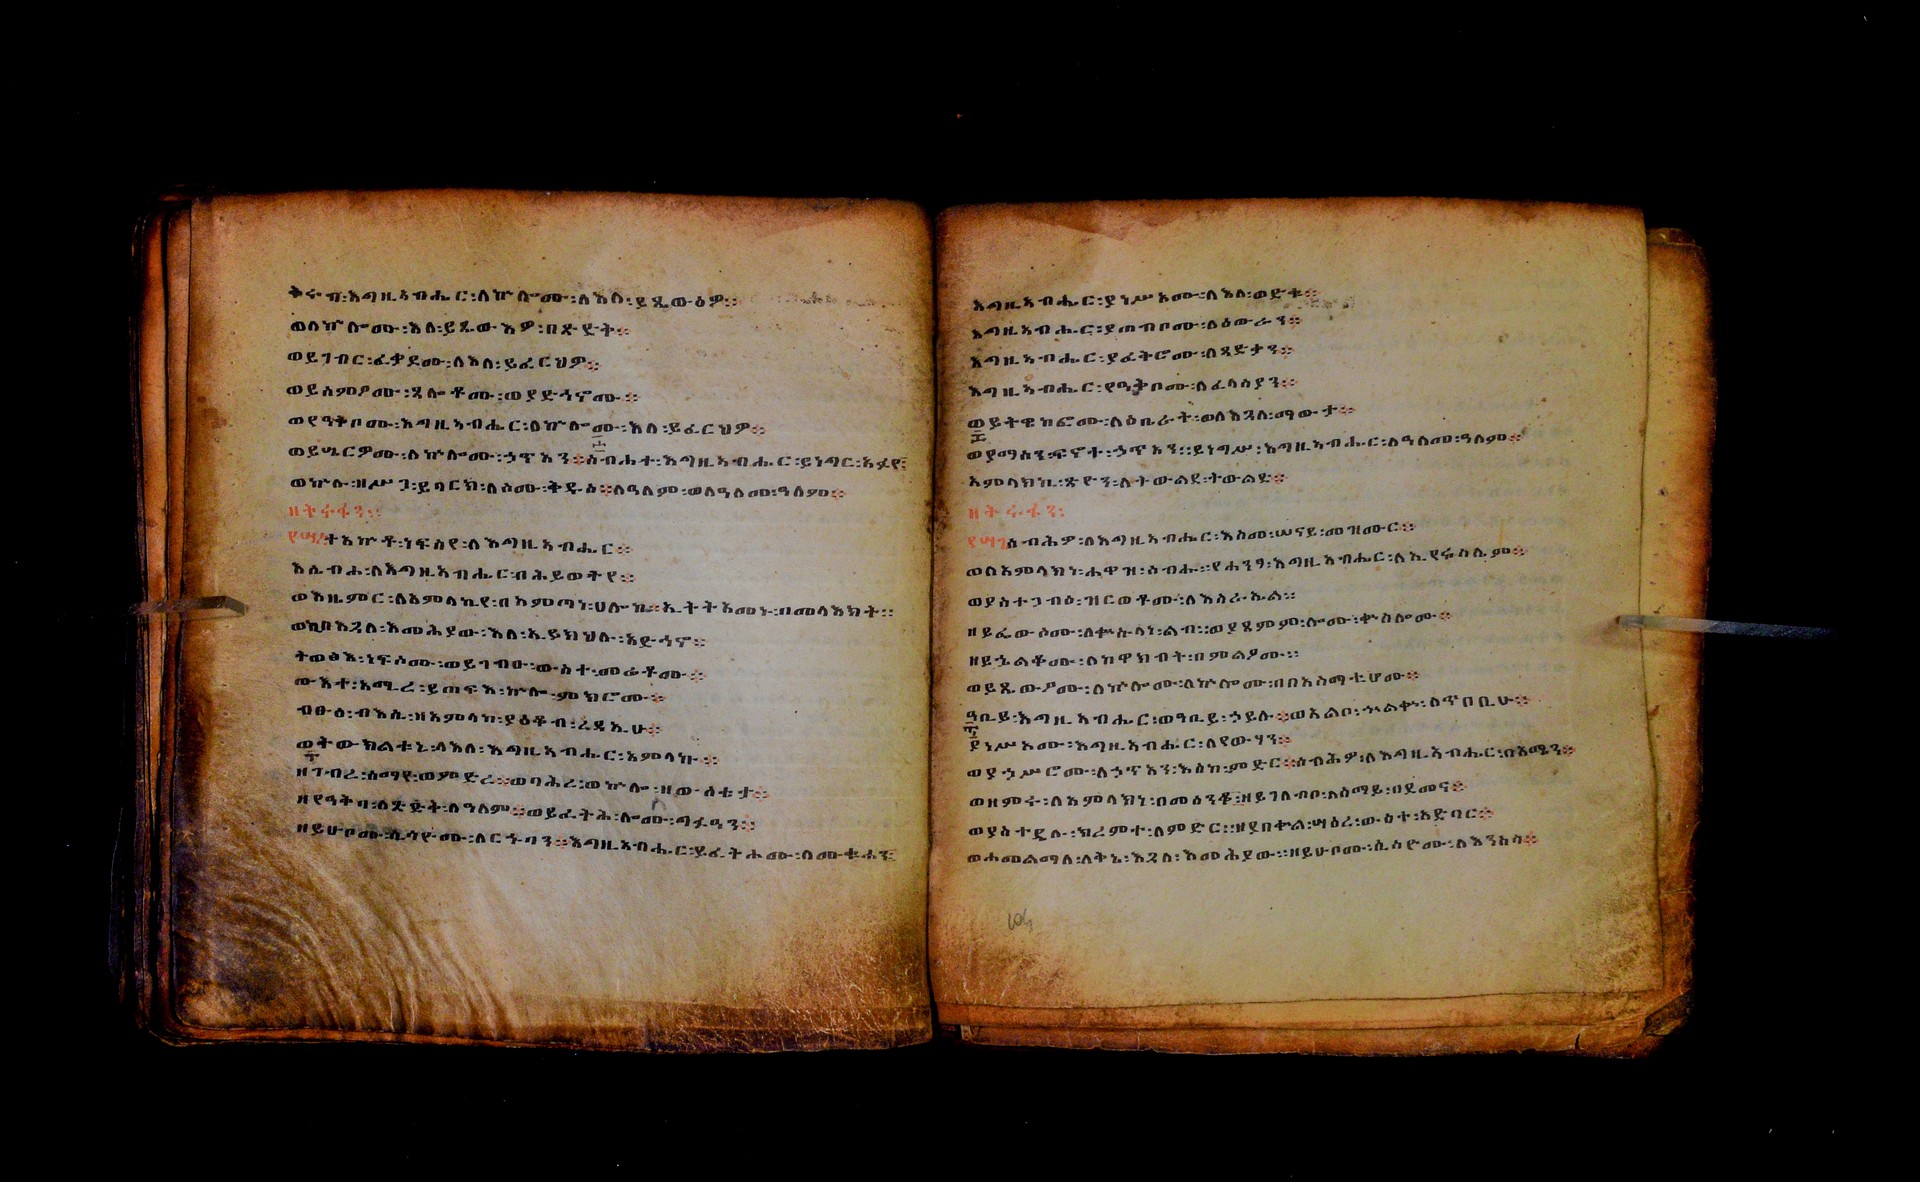 ቅሩብ፡እግዚአብሔር፡ለኵሎሙ፡ለእለ፡ይጼውዕዎ፨
ወለኵሎሙ፡እለ፡ይጼውእዎ፡በጽድቅ፨
ወይገብር፡ፈቃደሙ፡ለእለ፡ይፈርህዎ፨
ወይሰምዖሙ፡ጸሎቶሙ፡ወያድኅኖሙ፨
ወየዓቅቦሙ፡እግዚአብሔር፡ለኵሎሙ፡እለ፡ይፈርህዎ፨
ወይሤርዎሙ፡ለኵሎሙ፡ኃጥአን፨ስብሐተ፡እግዚአብሔር፡ይነግር፡አፉየ፤
ወኵሉ፡ዘሥጋ፡ይባርክ፡ለስሙ፡ቅዱስ፨ለዓለም፡ወለዓለመ፡ዓለም፨
ዘትሩፋን፨
ተአኵቶ፡ነፍስየ፡ለእግዚአብሔር፨
እሴብሖ፡ለእግዚአብሔር፡በሕይወትየ፨
ወእዜምር፡ለአምላኪየ፡በአምጣነ፡ሀሎኩ፨ኢትትአመኑ፡በመላእክት፨
ወኢበእጓለ፡እመሕያው፡እለ፡ኢይክህሉ፡አድኅኖ፨
ትወፅእ፡ነፍሶሙ፡ወይገብኡ፡ውስተ፡መሬቶሙ፨
ውእተ፡አሚረ፡ይጠፍእ፡ኵሎ፡ምክሮሙ፨
ብፁዕ፡ብእሲ፡ዘአምላከ፡ያዕቆብ፡ረዳኢሁ፨
ወትውክልቱኒ፡ላእለ፡እግዚአብሔር፡አምላኩ፨
ዘገብረ፡ሰማየ፡ወምድረ፨ወባሕረ፡ወኵሎ፡ዘውስቴታ፨
ዘየዓቅባ፡ለጽድቅ፡ለዓለም፨ወይፈትሕ፡ሎሙ፡ግፉዓን፨
ዘይሁቦሙ፡ሲሳዮሙ፡ለርኁባን፨እግዚአብሔር፡ይፈትሖሙ፡ለሙቁሓን፤
እግዚአብሔር፡ያነሥአሙ፡ለእለ፡ወድቁ፨
እግዚአብሔር፡ያጠብቦሙ፡ለዕውራን፨
እግዚአብሔር፡ያፈትሮሙ፡ለጻድቃን፨
እግዚአብሔር፡የዓቅቦሙ፡ለፈላስያን፨
ወይትዌከፎሙ፡ለዕቤራት፡ወለእጓለ፡ማውታ፨
ወያማስን፡ፍኖተ፡ኃጥአን፨ይነግሥ፡እግዚአብሔር፡ለዓለመ፡ዓለም፨
አምላክኪ፡ጽዮን፡ለትውልደ፡ትውልድ፨
ዘትሩፋን፡
ሰብሕዎ፡ለእግዚአብሔር፡እስመ፡ሠናይ፡መዝሙር፨
ወለአምላክነ፡ሐዋዝ፡ሰብሖ፨የሐንፃ፡እግዚአብሔር፡ለኢየሩሰሌም፨
ወያስተጋብዕ፡ዝርወቶሙ፡ለእስራኤል፨
ዘይፌውሶሙ፡ለቍሱላነ፡ልብ፨ወያጼምም፡ሎሙ፡ቍስሎሙ፨
ዘይኄልቆሙ፡ለከዋክብት፡በምልዖሙ፨
ወይጼውዖሙ፡ለኵሎሙ፡ለኵሎሙ፡በበአስማቲሆሙ፨
ዓቢይ፡እግዚአብሔር፡ወዓቢይ፡ኃይሉ፨ወአልቦ፡ኍልቍ፡ለጥበቢሁ፨
ያነሥአሙ፡እግዚአብሔር፡ለየውሃን፨
ወያኃሥሮሙ፡ለኃጥአን፡እስከ፡ምድር፨ሰብሕዎ፡ለእግዚአብሔር፡በአሚን፨
ወዘምሩ፡ለአምላክነ፡በመሰንቆ፡ዘይገለብቦ፡ለሰማይ፡በደመና፨
ወያስተዴሉ፡ክረምተ፡ለምድር፨ዘያበቍል፡ሣዕረ፡ውስተ፡አድባር፨
ወሐመልማለ፡ለቅኔ፡እጓለ፡እመሕያው፨ዘይሁቦሙ፡ሲሳዮሙ፡ለእንስሳ፨